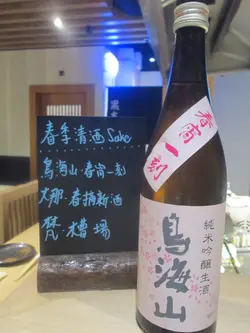 春季清酒 Sake
鳥海山·春宵一刻
大那·春摘新酒
梵·槽場
春宵一刻
純米吟醸生酒
鳥海山